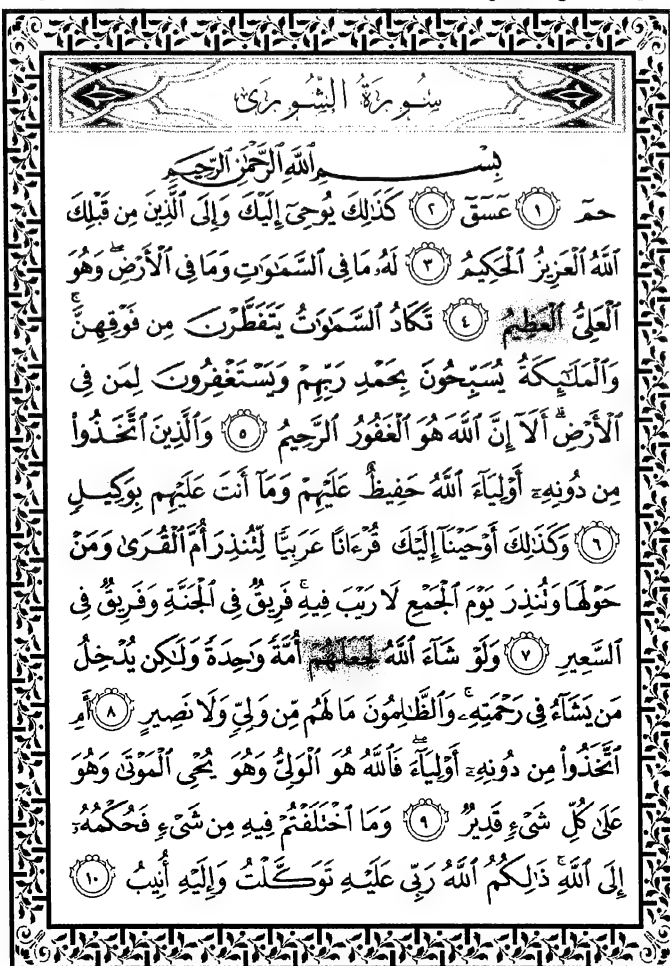 سُورَةُ الشُّورَىٰ
بِسْمِ اللَّهِ الرَّحْمَٰنِ الرَّحِيمِ
حمٓ ١ عٓسٓقٓ ٢ كَذَٰلِكَ يُوحِىٓ إِلَيْكَ وَإِلَى ٱلَّذِينَ مِن قَبْلِكَ
ٱللَّهُ ٱلْعَزِيزُ ٱلْحَكِيمُ ٣ لَهُۥ مَا فِى ٱلسَّمَٰوَٰتِ وَمَا فِى ٱلْأَرْضِ ۖ وَهُوَ
ٱلْعَلِىُّ ٱلْعَظِيمُ ٤ تَكَادُ ٱلسَّمَٰوَٰتُ يَتَفَطَّرْنَ مِن فَوْقِهِنَّ ۚ
وَٱلْمَلَٰٓئِكَةُ يُسَبِّحُونَ بِحَمْدِ رَبِّهِمْ وَيَسْتَغْفِرُونَ لِمَن فِى
ٱلْأَرْضِ ۗ أَلَآ إِنَّ ٱللَّهَ هُوَ ٱلْغَفُورُ ٱلرَّحِيمُ ٥ وَٱلَّذِينَ ٱتَّخَذُوا۟
مِن دُونِهِۦٓ أَوْلِيَآءَ ٱللَّهُ حَفِيظٌ عَلَيْهِمْ وَمَآ أَنتَ عَلَيْهِم بِوَكِيلٍ
٦ وَكَذَٰلِكَ أَوْحَيْنَآ إِلَيْكَ قُرْءَانًا عَرَبِيًّا لِّتُنذِرَ أُمَّ ٱلْقُرَىٰ وَمَنْ
حَوْلَهَا وَتُنذِرَ يَوْمَ ٱلْجَمْعِ لَا رَيْبَ فِيهِ ۚ فَرِيقٌ فِى ٱلْجَنَّةِ وَفَرِيقٌ فِى
ٱلسَّعِيرِ ٧ وَلَوْ شَآءَ ٱللَّهُ لَجَعَلَهُمْ أُمَّةً وَٰحِدَةً وَلَٰكِن يُدْخِلُ
مَن يَشَآءُ فِى رَحْمَتِهِۦ ۚ وَٱلظَّٰلِمُونَ مَا لَهُم مِّن وَلِىٍّ وَلَا نَصِيرٍ ٨ أَمِ
ٱتَّخَذُوا۟ مِن دُونِهِۦٓ أَوْلِيَآءَ ۖ فَٱللَّهُ هُوَ ٱلْوَلِىُّ وَهُوَ يُحْىِ ٱلْمَوْتَىٰ وَهُوَ
عَلَىٰ كُلِّ شَىْءٍ قَدِيرٌ ٩ وَمَا ٱخْتَلَفْتُمْ فِيهِ مِن شَىْءٍ فَحُكْمُهُۥٓ
إِلَى ٱللَّهِ ۚ ذَٰلِكُمُ ٱللَّهُ رَبِّى عَلَيْهِ تَوَكَّلْتُ وَإِلَيْهِ أُنِيبُ ١٠